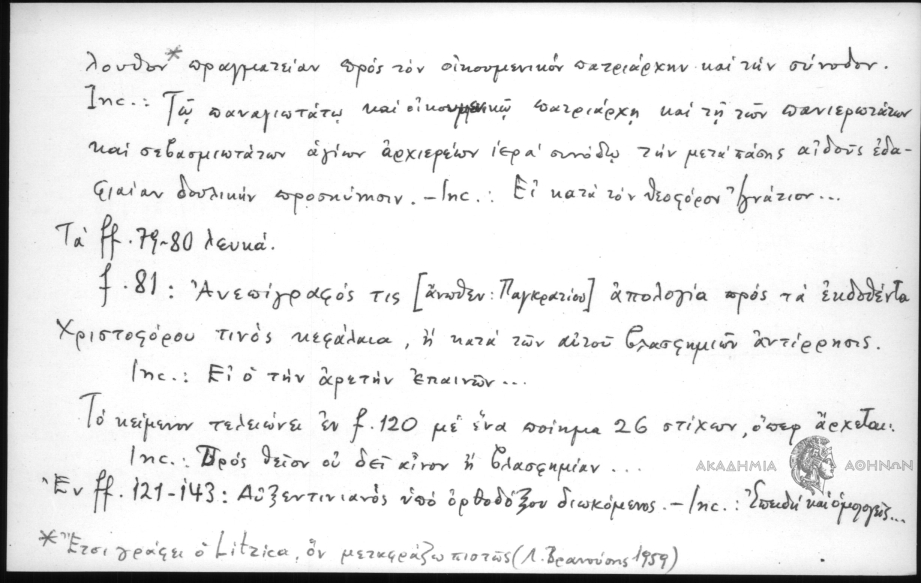 λουθον* πραγματείαν πρός τόν οἰκουμενικόν πατριάρχην καί τήν σύνοδον.
Inc.: Τῷ παναγιωτάτῳ καί οἰκουμενικῷ πατριάρχῃ καί τῇ τῶν πανιερωτάτων
καί σεβασμιωτάτων ἁγίων ἀρχιερέων ἱερᾷ συνόδῳ τήν μετά πάσης αἰδοῦς ἐδα-
φιαίαν δουλικήν προσκύνησιν. – Inc.: Εἰ κατά τόν θεοφόρον Ἰγνάτιον...
Τά ff. 79-80 λευκά.
f. 81: Ἀνεπίγραφός τις [ἄνωθεν: Παγκρατίου] ἀπολογία πρός τά ἐκδοθέντα
Χριστοφόρου τινός κεφάλαια, ἤ κατά τῶν αὐτοῦ βλασφημιῶν ἀντίρρησις.
Inc.: Εἰ ὁ τήν ἀρετήν ἐπαινῶν...
Τό κείμενον τελειώνει ἐν f. 120 μέ ἕνα ποίημα 26 στίχων, ὅπερ ἄρχεται:
Inc.: Πρός θεῖον οὐ δεῖ αἶνον ἤ βλασφημίαν...
Ἐν ff. 121-143: Αὐξεντινιανός ὑπό ὀρθοδόξου διωκόμενος. – Inc.: Ἐπειδή καί ὁμολογεῖς...
* Ἔτσι γράφει ὁ Litzica, ὅν μεταφράζω πιστῶς (Λ. Βρανούσης 1959)
ΑΚΑΔΗΜΙΑ ΑΘΗΝΩΝ